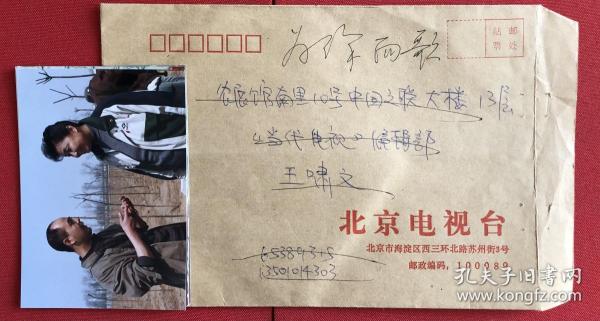 邮票
贴处
为徐雨歌
农展馆南里10号中国文联大楼13层
《当代电视》编辑部
王啸文
北京电视台
北京市海淀区西三环北路苏州街3号
邮政编码：100089
13501014303
孔夫子旧书网
www.kongfz.com